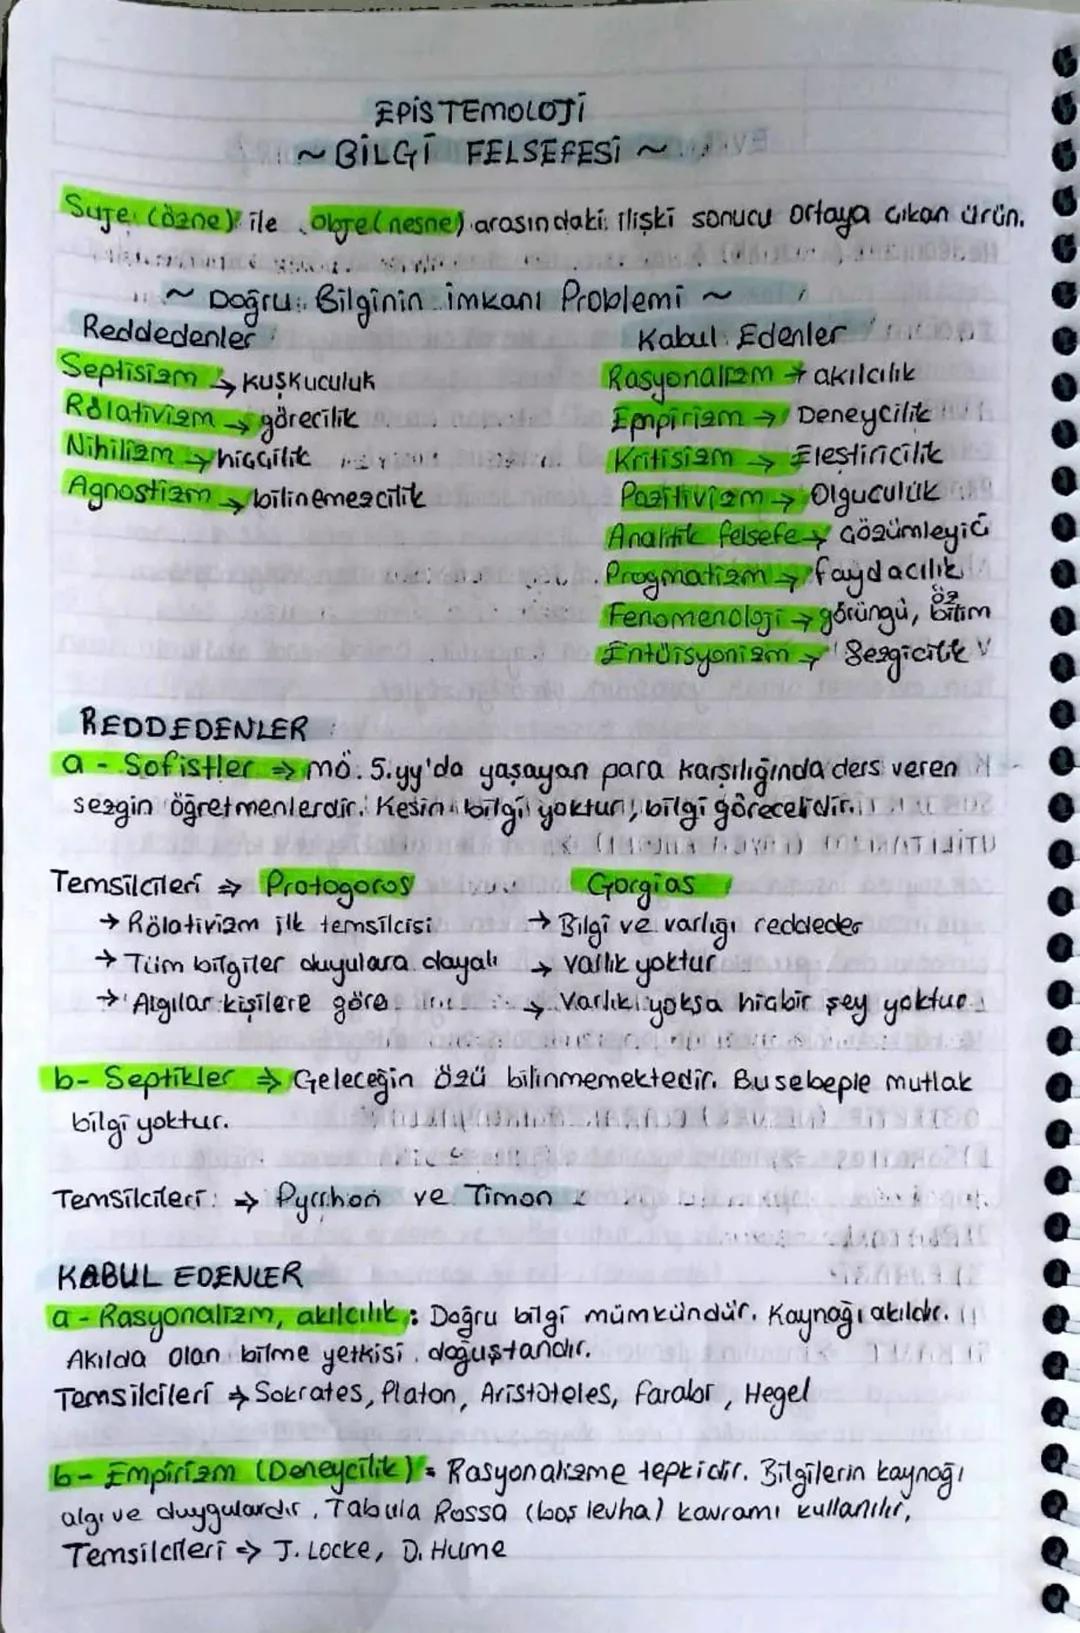 EPİSTEMOLOJİ
~ BİLGİ FELSEFESİ ~
Suje (özne) ile obje (nesne) arasındaki ilişki sonucu ortaya çıkan ürün.
~ Doğru Bilginin imkanı Problemi ~
Reddedenler
Septisizm → kuşkuculuk
Rölativizm → görecilik
Nihilizm → hiççilik
Agnostizm → bilinemezcilik
Kabul Edenler
Rasyonalizm → akılcılık
Empirizm → Deneycilik
Kritisizm → Eleştiricilik
Pozitivizm → Olguculuk
Analitik felsefe → Çözümleyici
Pragmatizm → faydacılık
Fenomenoloji → görüngü, öz bilim
Entüisyonizm → Sezgicilik
REDDEDENLER
a - Sofistler ⇒ mö. 5.yy'da yaşayan para karşılığında ders veren
sezgin öğretmenlerdir. Kesin bilgi yoktur, bilgi görecelidir.
Temsilcileri ⇒ Protogoros
→ Rölativizm ilk temsilcisi
→ Tüm bilgiler duyulara dayalı
→ Algılar kişilere göre
Gorgias
→ Bilgi ve varlığı reddeder
→ varlık yoktur
→ Varlık yoksa hiçbir şey yoktur
b- Septikler ⇒ Geleceğin özü bilinmemektedir. Bu sebeple mutlak
bilgi yoktur.
Temsilcileri ⇒ Pyrrhon ve Timon
KABUL EDENLER
a - Rasyonalizm, akılcılık : Doğru bilgi mümkündür. Kaynağı akıldır.
Akılda olan bilme yetkisi doğuştandır.
Temsilcileri ⇒ Sokrates, Platon, Aristoteles, Farabi, Hegel
b - Empirizm (Deneycilik) = Rasyonalizme tepkidir. Bilgilerin kaynağı
algı ve duygulardır. Tabula Rossa (boş levha) kavramı kullanılır.
Temsilcileri ⇒ J. Locke, D. Hume